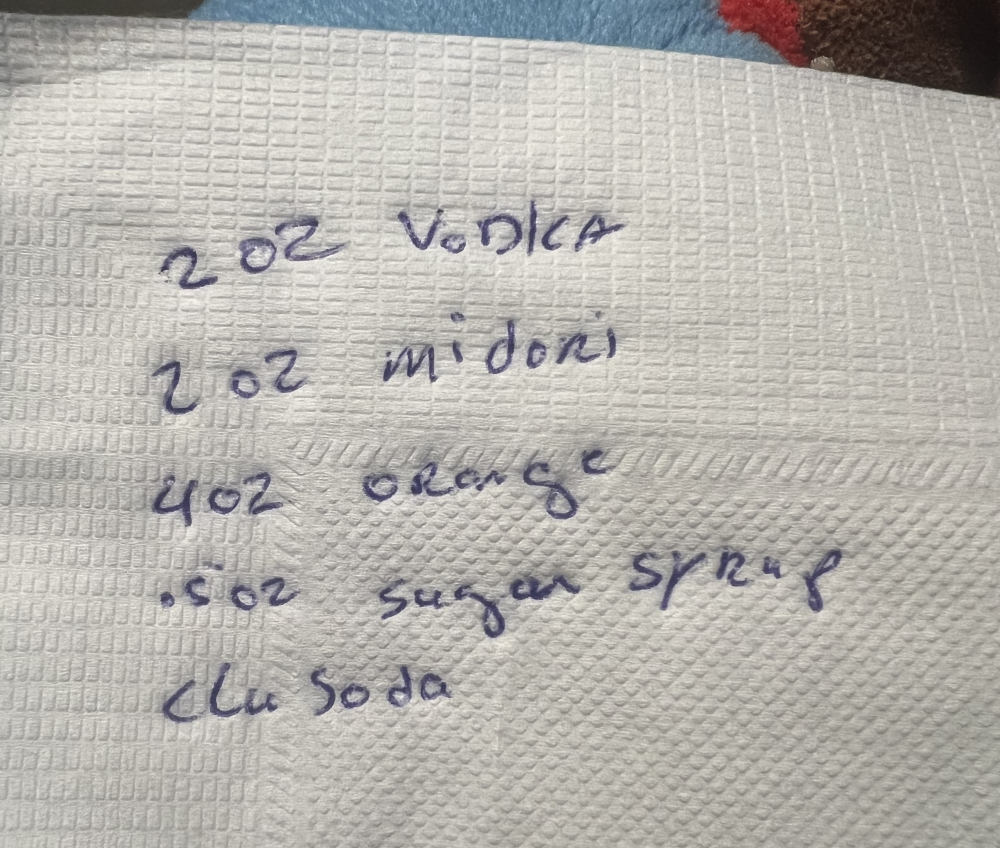 2 oz VoDKA
2 oz midori
4oz orange
.5oz sugar syrup
clu Soda